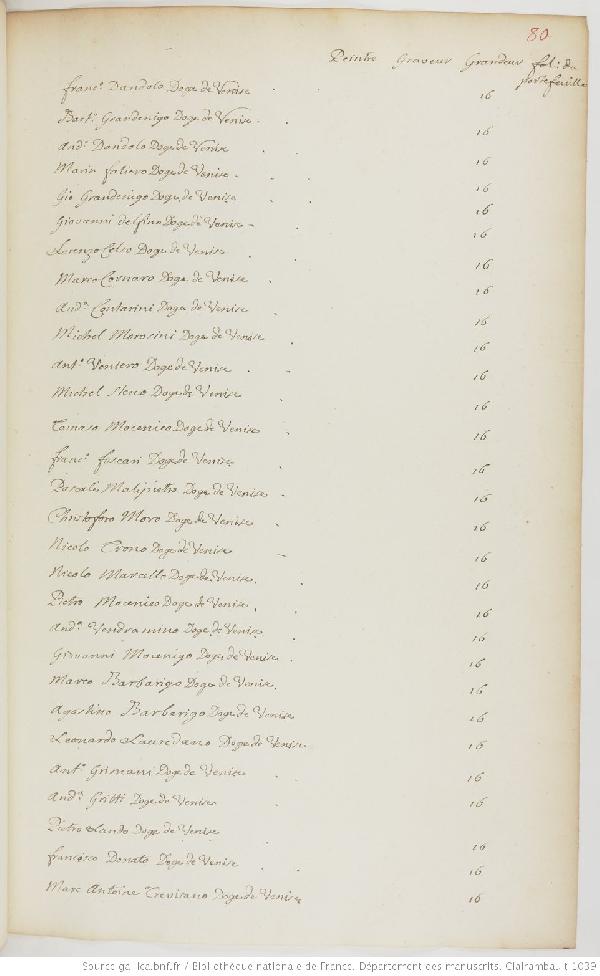 80
Peintre Graveur Grandeur fol: du portefeuille
franc.º Dandolo Doge de Venise 16
Bart.º Grandenigo Doge de Venise 16
And.ª Dandolo Doge de Venise 16
Marin faliero Doge de Venise 16
Gio Grandenigo Doge de Venise 16
Giovanni delfino Doge de Venise 16
Lorenzo Celso Doge de Venise 16
Marco Cornaro Doge de Venise 16
And.ª Contarini Doge de Venise 16
Michel Morosini Doge de Venise 16
Ant.º Veniero Doge de Venise 16
Michel Steno Doge de Venise 16
Tomaso Mocenico Doge de Venise 16
franc.º foscari Doge de Venise 16
Pascale Malipietro Doge de Venise 16
Christoforo Moro Doge de Venise 16
Nicolo Trono Doge de Venise 16
Nicolo Marcello Doge de Venise 16
Pietro Mocenico Doge de Venise 16
And.ª Vendramino Doge de Venise 16
Giovanni Mocenigo Doge de Venise 16
Marco Barbarigo Doge de Venise 16
Agostino Barbarigo Doge de Venise 16
Leonardo Lauredano Doge de Venise 16
Ant.º Grimani Doge de Venise 16
And.ª Gritti Doge de Venise 16
Pietro Lando Doge de Venise 16
francisco Donato Doge de Venise 16
Marc Antoine Trevisano Doge de Venise 16
Source gallica.bnf.fr / Bibliothèque nationale de France. Département des manuscrits. Clairambault 1039